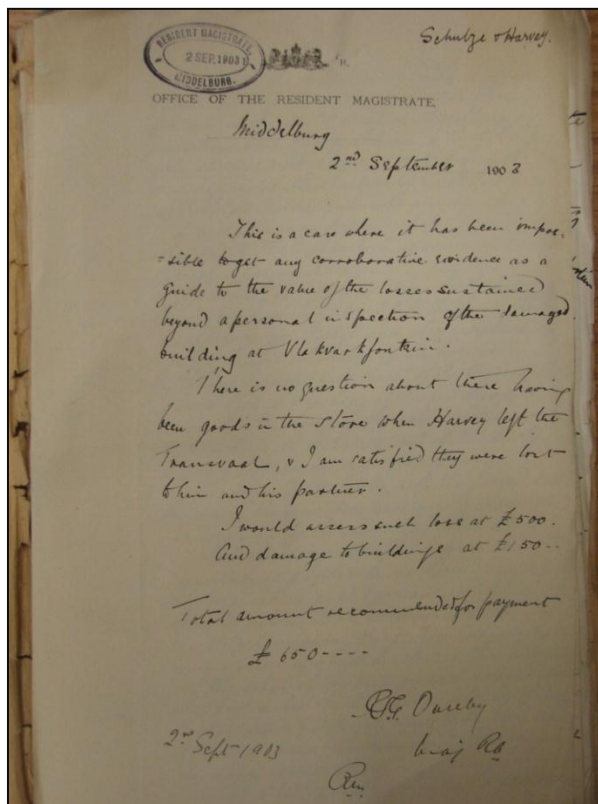 Schulze & Harvey.
RESIDENT MAGISTRATE.
2 SEP. 1903
MIDDELBURG.
OFFICE OF THE RESIDENT MAGISTRATE,
Middelburg
2nd September 1903
This is a case where it has been impos-
-sible to get any corroborative evidence as a
guide to the value of the losses sustained
beyond a personal inspection of the damaged
building at Vlakvarkfontein.
There is no question about there having
been goods in the store when Harvey left the
Transvaal, & I am satisfied they were lost
to him and his partner.
I would assess such loss at £500.
And damage to buildings at £150..
Total amount recommended for payment
£650----
2nd Sept 1903
Maj
RM